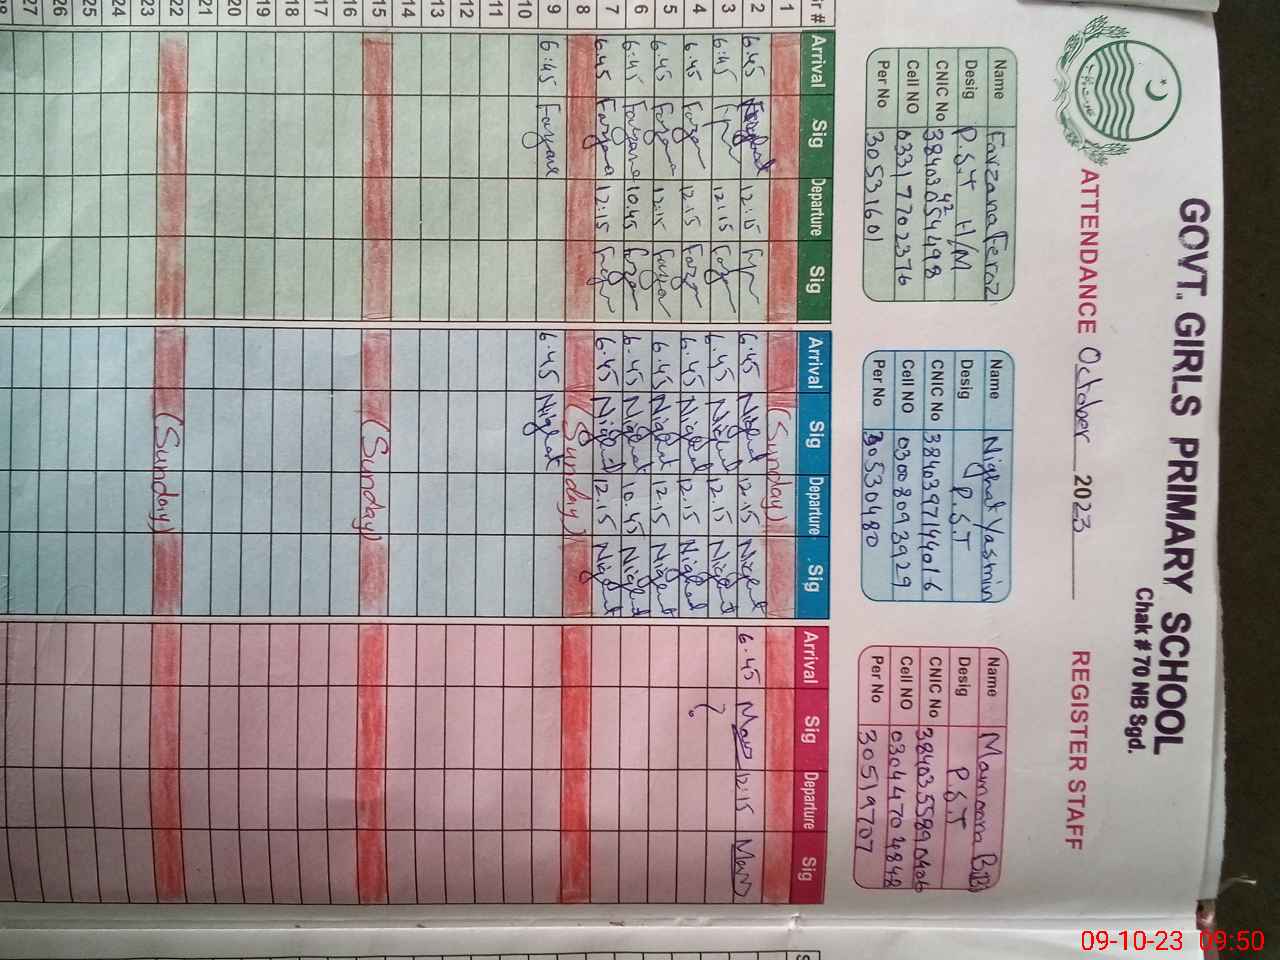 GOVT. GIRLS PRIMARY SCHOOL
Chak # 70 NB Sgd.
ATTENDANCE October 2023 REGISTER STAFF
Name Farzana Feroz
Desig P.S.T H/M
CNIC No
Cell NO 03317702376
Per No 30531601
Name Nighat Yasmin
Desig P.S.T
CNIC No 3840397144016
Cell NO 03008093929
Per No 30530480
Name Mamoona BiBi
Desig P.S.T
CNIC No 3840355890406
Cell NO 03044704848
Per No 30519707
Sr # Arrival Sig Departure Sig Arrival Sig Departure Sig Arrival Sig Departure Sig
1 (Sunday)
2 6.45 12:15 6.45 Nighat 12.15 Nighat 6.45 12:15
3 6:45 12:15 6.45 Nighat 12.15 Nighat
4 6.45 12.15 6.45 Nighat 12.15 Nighat ?
5 6.45 12:15 6.45 Nighat 12.15 Nighat
6 6:45 Farzana 10.45 6.45 Nighat 10.45 Nighat
7 6.45 Farzana 12:15 6.45 Nighat 12.15 Nighat
8 (Sunday)
9 6:45 Farzana 6.45 Nighat
10
11
12
13
14
15 (Sunday)
16
17
18
19
20
21
22 (Sunday)
23
24
25
26
27
28
09-10-23 09:50